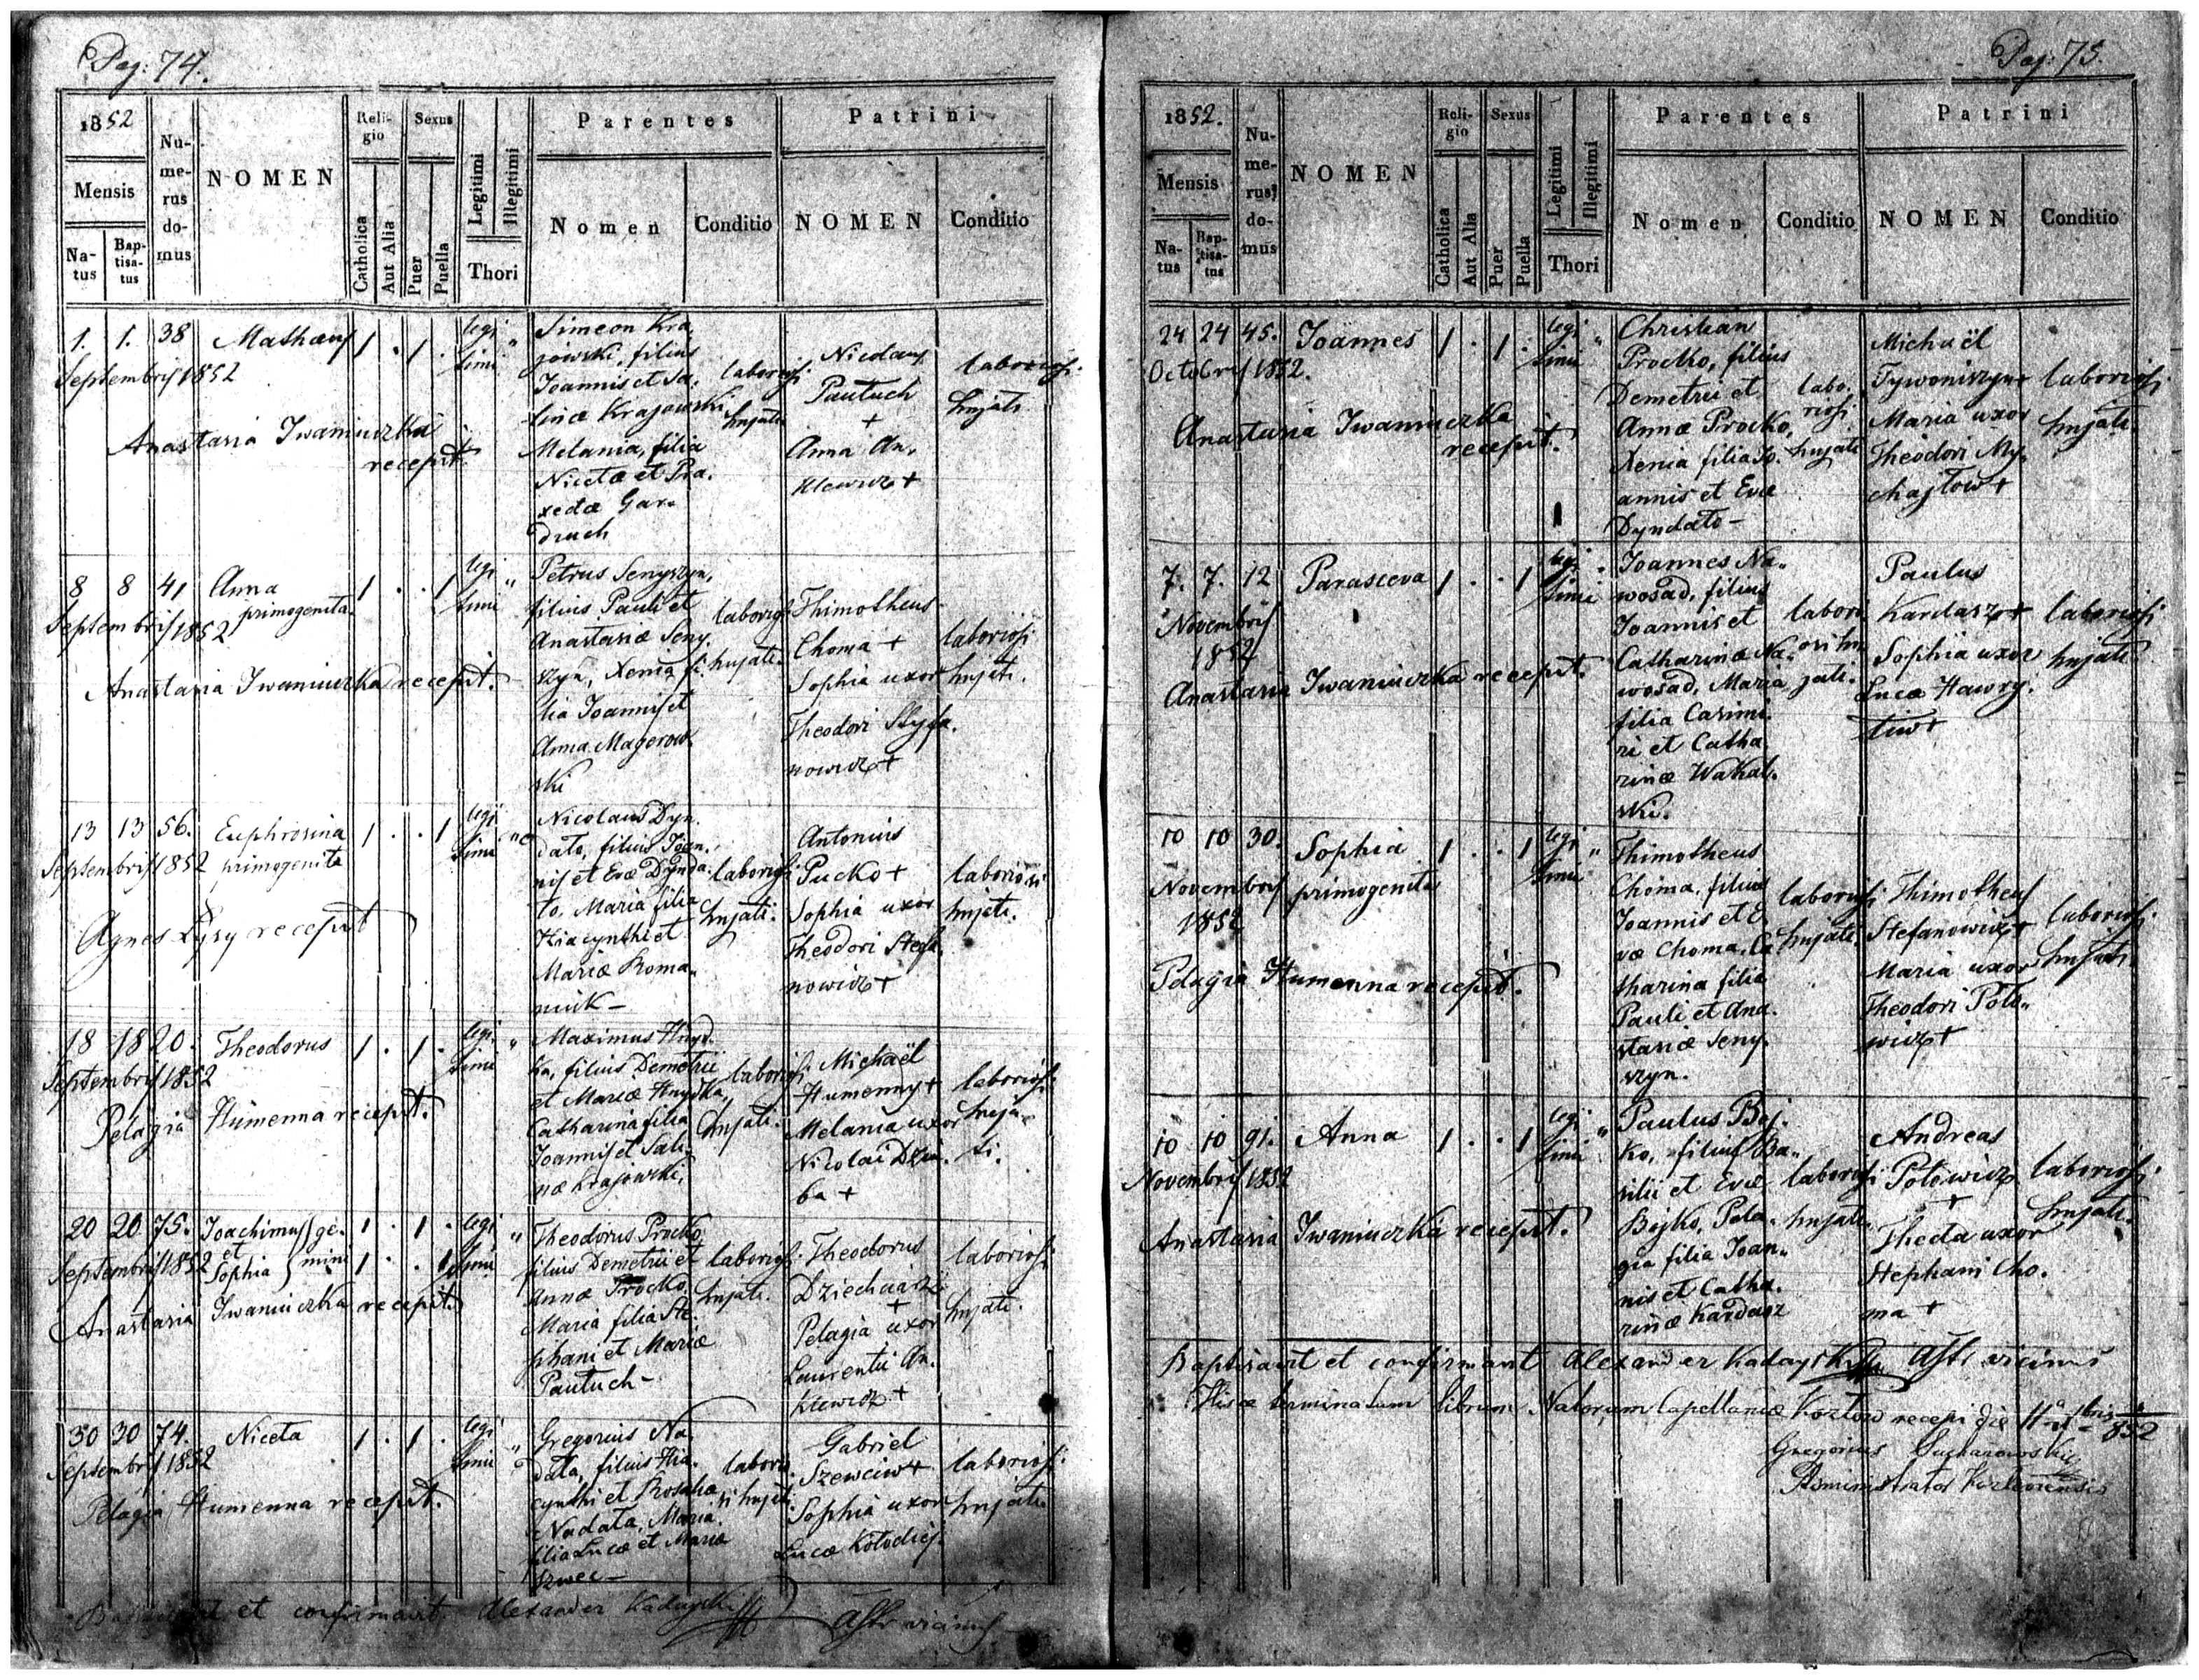 Pag: 74.
1852
Mensis
Na-
tus
Bap-
tisa-
tus
Nu-
me-
rus
do-
mus
NOMEN
Reli-
gio
Catholica
Aut Alia
Sexus
Puer
Puella
Legitimi
Illegitimi
Thori
Parentes
Nomen
Conditio
Patrini
NOMEN
Conditio
1. 1. 38 Mathaeus 1 . 1 .
Septembris 1852
Anastasia Iwaniuczka
recepit.
legi
timi "
Simeon Kra
jowski, filius
Joannis et Sa.
linæ Krajowski
Melania, filia
Nicetæ et Pra.
xedæ Gar.
druch
laboriosi
hujati
Nicolaus
Pautuch
+
Anna An.
klewicz +
laboriosi
hujati.
8 8 41 Anna 1 . . 1
primogenita.
Septembris 1852
Anastasia Iwaniuczka recepit.
legi
timi "
Petrus Senyszyn,
filius Pauli et
Anastasiæ Seny.
szyn, Xenia fi.
lia Joannis et
Anna Magerow.
ski
laboriosi
hujati.
Thimotheus
Choma +
Sophia uxor
Theodori Styfa.
nowicz +
laboriosi
hujati.
13 13 56. Euphrosina 1 . . 1
Septembris 1852 primogenita
Agnes Łysy recepit
legi
timi "
Nicolaus Dyn.
dato, filius Joan.
nis et Evæ Dynda.
to, Maria filia
Hiacynthi et
Mariæ Roma.
niuk -
laboriosi
hujati.
Antonius
Pucko +
Sophia uxor
Theodori Stefa.
nowicz +
laboriosi
hujati.
18 18 20. Theodorus 1 . 1 .
Septembris 1852
Pelagia Humenna recepit.
legi
timi "
Maximus Hnyd.
ka, filius Demetrii
et Mariæ Hnydka,
Catharina filia
Joannis et Sali.
næ Krajowski,
laboriosi
hujati.
Michaël
Humenny +
Melania uxor
Nicolai Dziu.
ba +
laboriosi
huja-
ti.
20 20 75. Joachimus ge. 1 . 1 .
et
Septembris 1852 Sophia mini 1 . . 1
Anastasia Iwaniuczka recepit.
legi
timi "
Theodorus Procko,
filius Demetrii et
Annæ Procko,
Maria filia Ste.
phani et Mariæ
Pautuch -
laboriosi
hujati.
Theodorus
Dziechciarz
+
Pelagia uxor
Laurentii An.
klewicz +
laboriosi
hujati.
30 30 74. Niceta 1 . 1 .
Septembris 1852
Pelagia Humenna recepit.
legi
timi "
Gregorius Na.
data, filius Hia.
cynthi et Rosaliæ
Nadata, Maria
filia Lucæ et Mariæ
Szwec -
laborio
si hujati.
Gabriel
Szewciw +
Sophia uxor
Lucæ Kołodiej.
laboriosi
hujati
Baptisavit et confirmavit Alexander Kadayski Asti vicinus
Pag: 75.
1852.
Mensis
Na-
tus
Bap-
tisa-
tus
Nu-
me-
rus
do-
mus
NOMEN
Reli-
gio
Catholica
Aut Alia
Sexus
Puer
Puella
Legitimi
Illegitimi
Thori
Parentes
Nomen
Conditio
Patrini
NOMEN
Conditio
24 24 45. Joannes 1 . 1 .
Octobris 1852.
Anastasia Iwaniuczka
recepit.
legi
timi "
Christian
Procko, filius
Demetrii et
Annæ Procko,
Xenia filia Jo.
annis et Evæ
Dyndato -
labo.
riosi
hujati
Michaël
Tywoniszyn +
Maria uxor
Theodori My.
chajłow +
laboriosi
hujati.
7. 7. 12 Parasceva 1 . . 1
Novembris
1852
Anastasia Iwaniuczka recepit.
legi
timi
Joannes Na.
wosad, filius
Joannis et
Catharinæ Na.
wosad, Maria
filia Casimi.
ri et Catha
rinæ Wakal.
ski.
labori
osi hu
jati.
Paulus
Kardasz +
Sophia uxor
Lucæ Hawry.
tiw +
laboriosi
hujati.
10 10 30. Sophia 1 . . 1
Novembris primogenita
1852
Pelagia Humenna recepit.
legi
timi "
Thimotheus
Choma, filius
Joannis et E.
væ Choma, Ca
tharina filia
Pauli et Ana.
stasiæ Seny.
szyn.
laboriosi
hujati.
Thimotheus
Stefanowicz +
Maria uxor
Theodori Poto.
wicz +
laboriosi
hujati.
10 10 91. Anna 1 . . 1
Novembris 1852
Anastasia Iwaniuczka recepit.
legi
timi "
Paulus Boj.
ko, filius Ba.
silii et Evæ
Bojko, Pela.
gia filia Joan.
nis et Catha.
rinæ Kardasz
laboriosi
hujati.
Andreas
Potowicz
+
Thecla uxor
Stephani Cho.
ma +
laboriosi
hujati.
Baptisavit et confirmavit Alexander Kadayski Asti vicinus
Hisce terminatum librum Natorum Capellaniæ Kozłow recepi die 852
Gregorius Sucharowski
Administrator Kozlowiensis